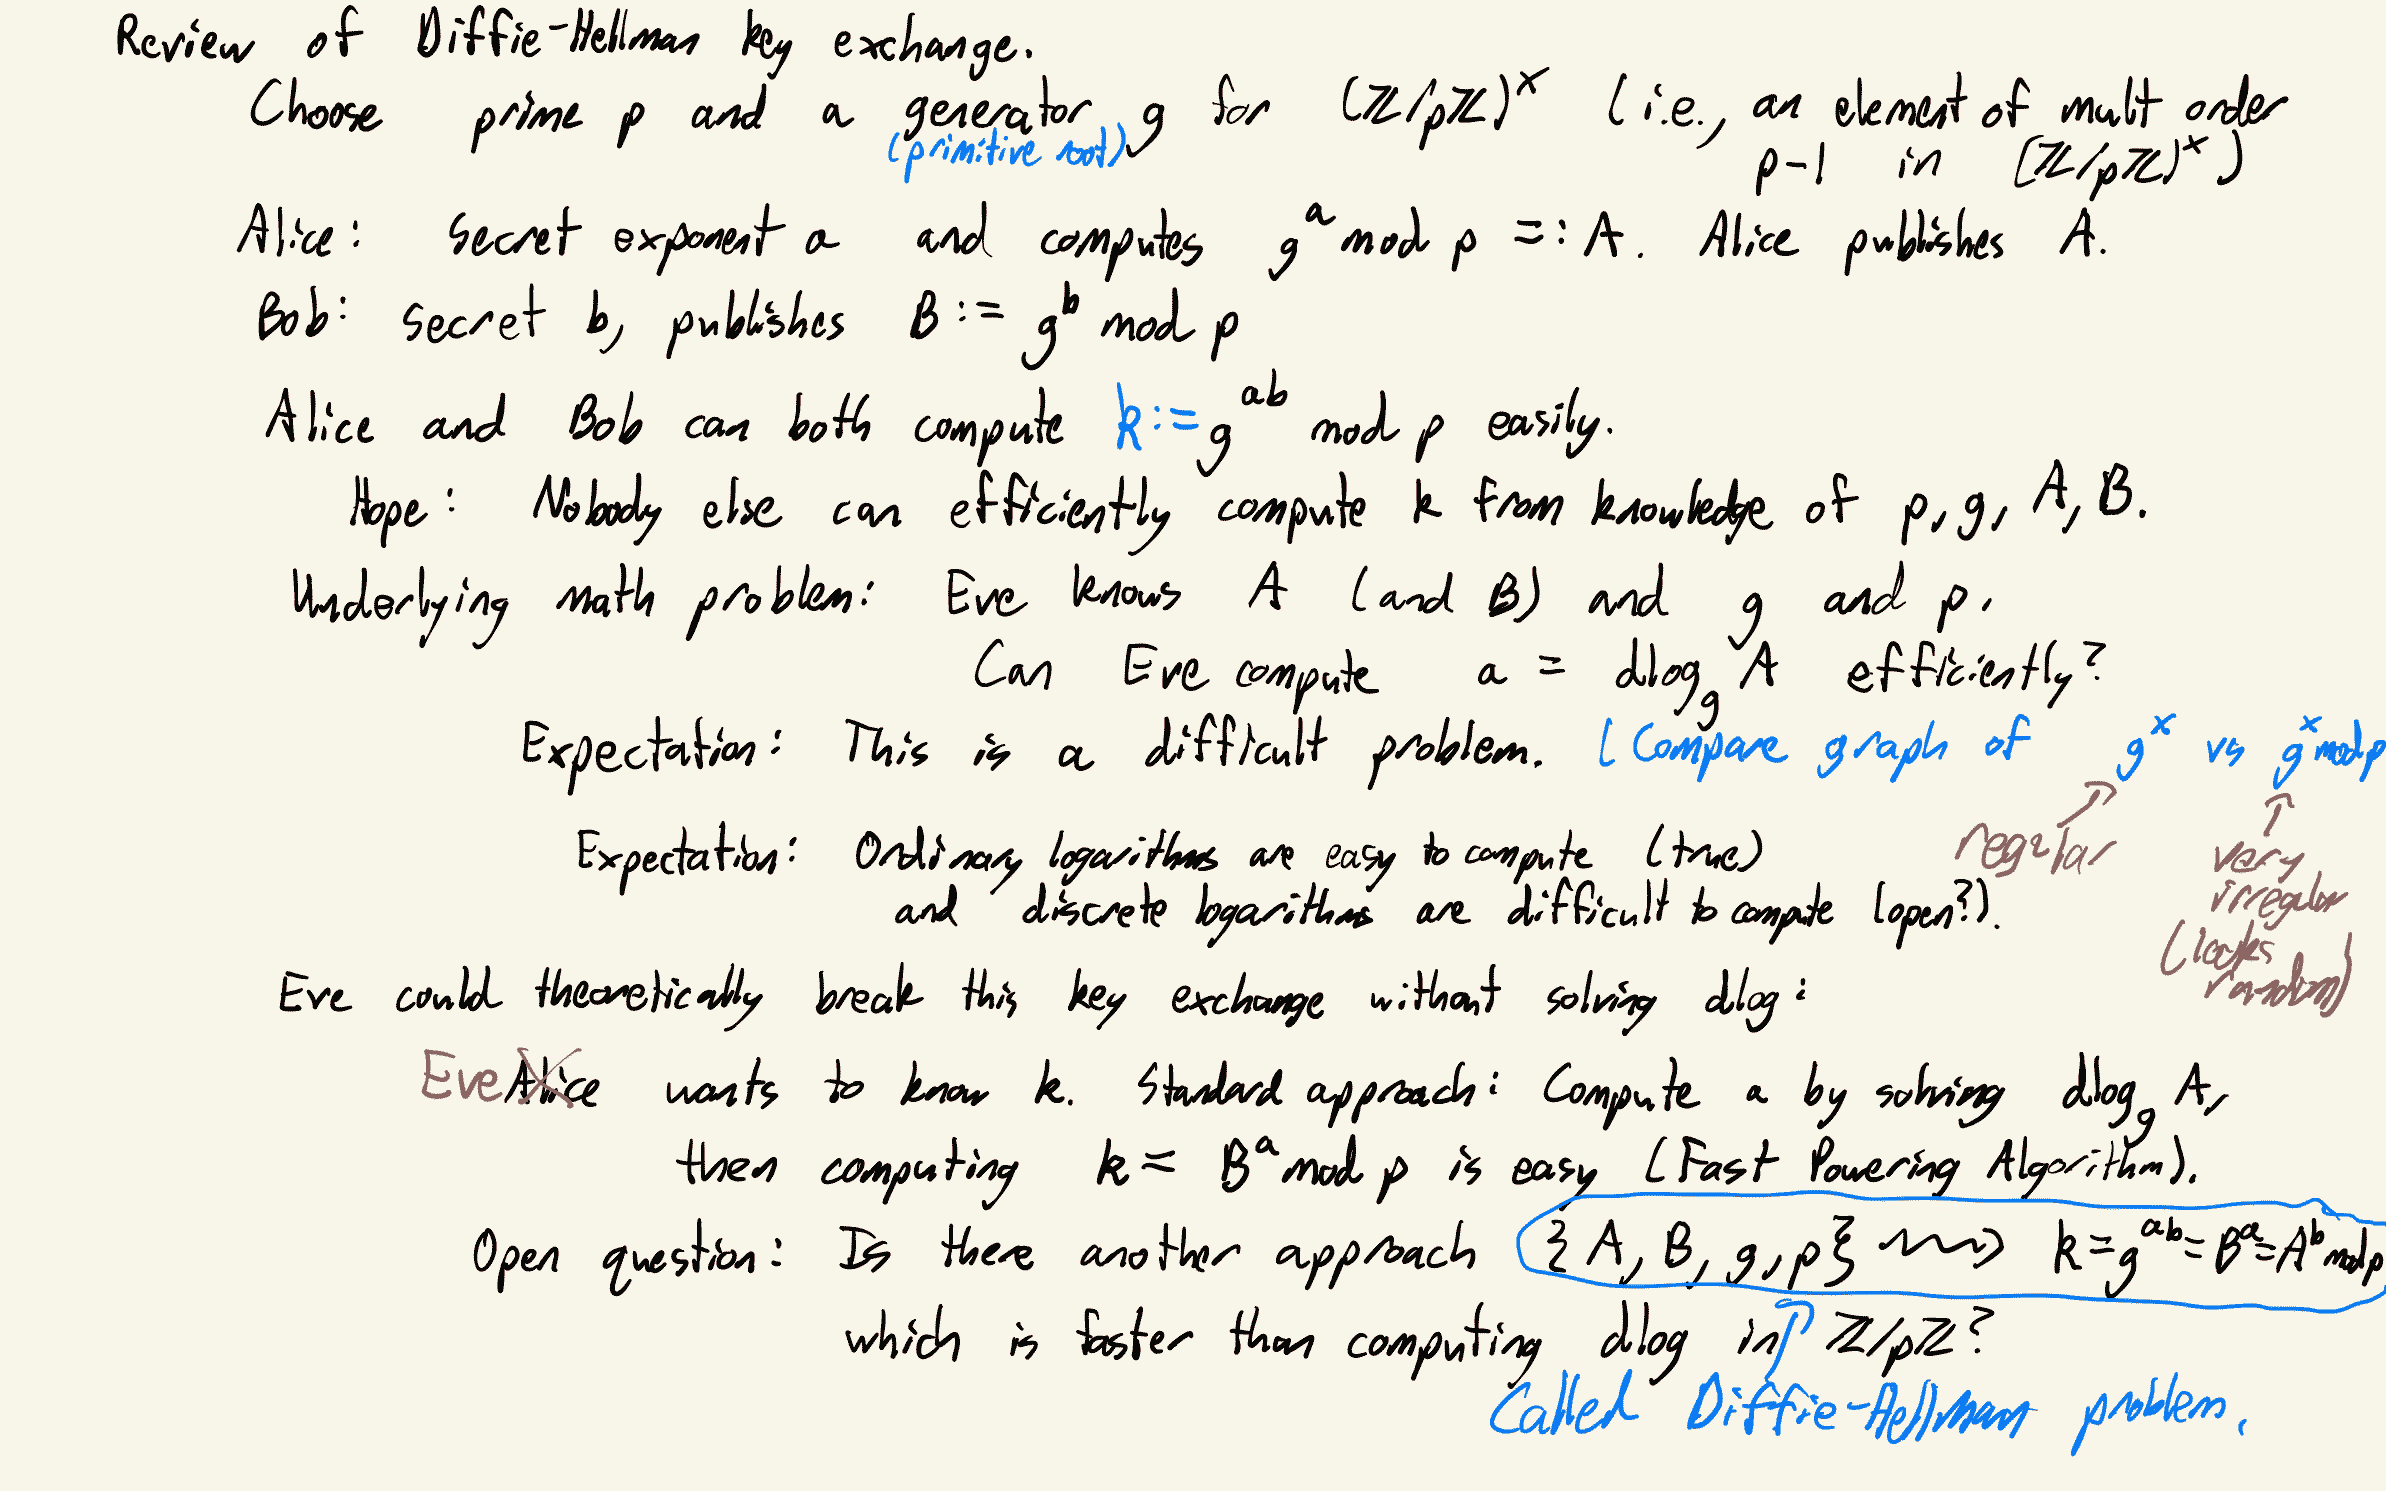 Review of Diffie-Hellman key exchange.
Choose prime p and a generator g for (ℤ/pℤ)^× (i.e., an element of mult order
(primitive root)
p-1 in (ℤ/pℤ)^×)
Alice: secret exponent a and computes g^a mod p =: A. Alice publishes A.
Bob: secret b, publishes B := g^b mod p
Alice and Bob can both compute k := g^ab mod p easily.
Hope: Nobody else can efficiently compute k from knowledge of p, g, A, B.
Underlying math problem: Eve knows A (and B) and g and p.
Can Eve compute a = dlog_g A efficiently?
Expectation: This is a difficult problem. (Compare graph of g^x vs g^x mod p
regular
very
irregular
(looks
random)
Expectation: Ordinary logarithms are easy to compute (true)
and discrete logarithms are difficult to compute (open?).
Eve could theoretically break this key exchange without solving dlog:
Eve Alice wants to know k. Standard approach: Compute a by solving dlog_g A,
then computing k = B^a mod p is easy (Fast Powering Algorithm).
Open question: Is there another approach {A, B, g, p} ⇝ k = g^ab = B^a = A^b mod p
which is faster than computing dlog in ℤ/pℤ?
Called Diffie-Hellman problem.